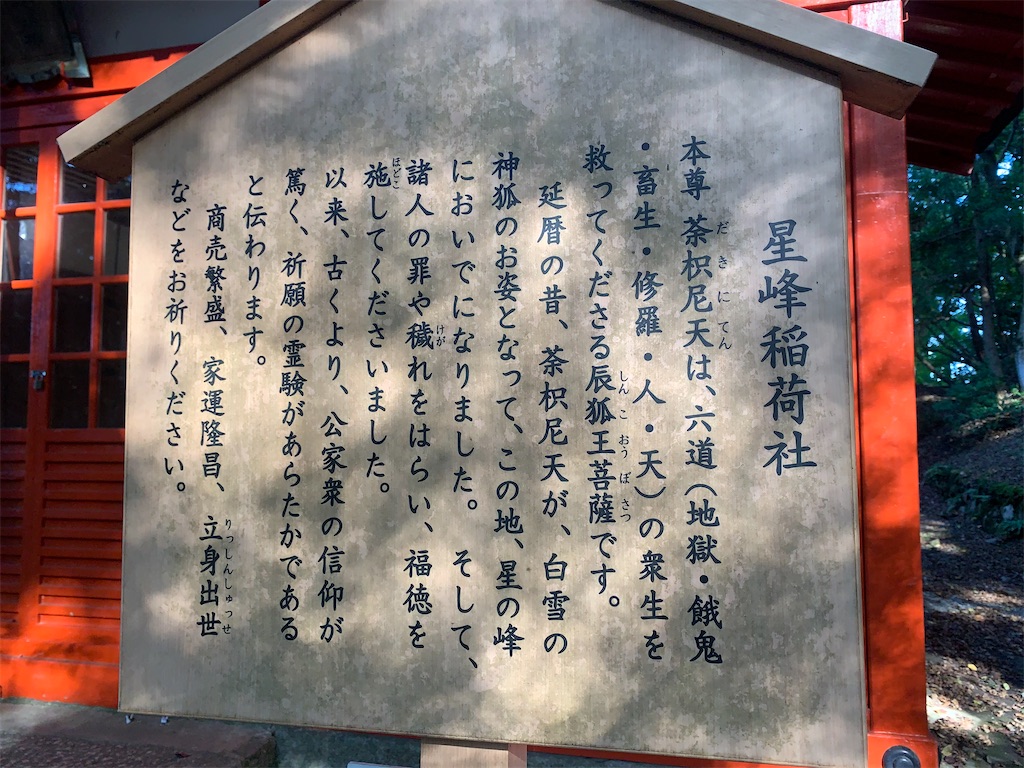 星峰稲荷社
本尊 荼枳尼天は、六道(地獄・餓鬼
・畜生・修羅・人・天)の衆生を
救ってくださる辰狐王菩薩です。
延暦の昔、荼枳尼天が、白雪の
神狐のお姿となって、この地、星の峰
においでになりました。そして、
諸人の罪や穢れをはらい、福徳を
施してくださいました。
以来、古くより、公家衆の信仰が
篤く、祈願の霊験があらたかである
と伝わります。
商売繁盛、家運隆昌、立身出世
などをお祈りください。
だきにてん
しんこおうぼさつ
けが
ほどこ
りっしんしゅつせ